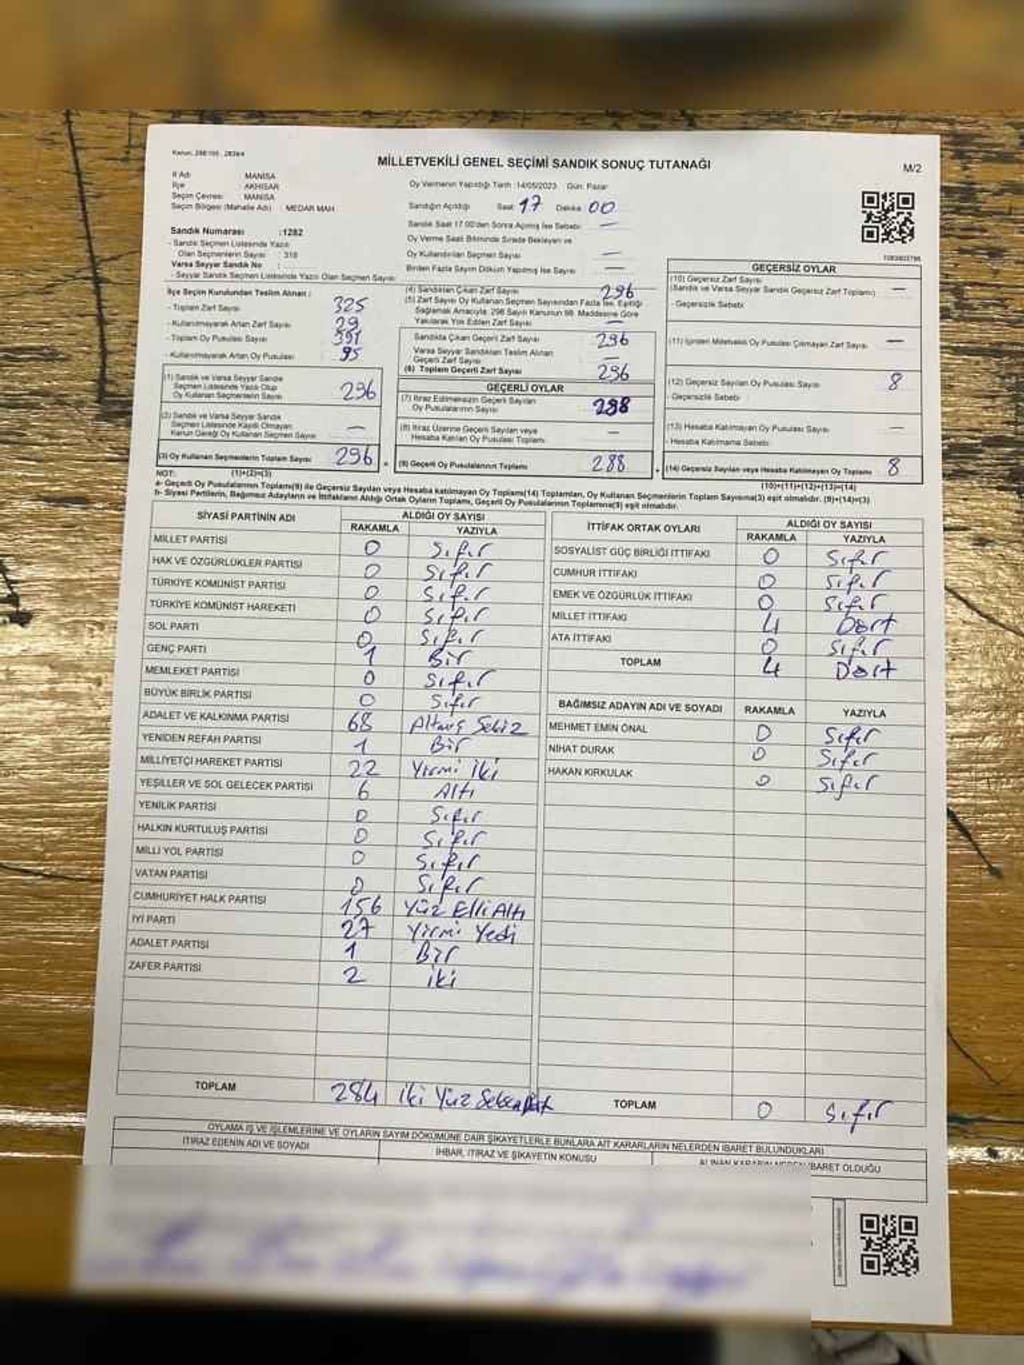 Kanun: 298/105 , 2839/4
MİLLETVEKİLİ GENEL SEÇİMİ SANDIK SONUÇ TUTANAĞI
M/2
İl Adı : MANİSA
İlçe : AKHİSAR
Seçim Çevresi : MANİSA
Seçim Bölgesi (Mahalle Adı) : MEDAR MAH.
Sandık Numarası :1282
- Sandık Seçmen Listesinde Yazılı
Olan Seçmenlerin Sayısı : 318
Varsa Seyyar Sandık No :
- Seyyar Sandık Seçmen Listesinde Yazılı Olan Seçmen Sayısı:
Oy Vermenin Yapıldığı Tarih :14/05/2023 Gün: Pazar
Sandığın Açıldığı Saat: 17 Dakika: 00
Sandık Saat 17.00'den Sonra Açılmış İse Sebebi: —
Oy Verme Saati Bitiminde Sırada Bekleyen ve
Oy Kullandırılan Seçmen Sayısı —
Birden Fazla Sayım Döküm Yapılmış İse Sayısı —
İlçe Seçim Kurulundan Teslim Alınan :
- Toplam Zarf Sayısı 325
- Kullanılmayarak Artan Zarf Sayısı 29
- Toplam Oy Pusulası Sayısı 391
- Kullanılmayarak Artan Oy Pusulası 95
(1) Sandık ve Varsa Seyyar Sandık
Seçmen Listesinde Yazılı Olup
Oy Kullanan Seçmenlerin Sayısı 296
(2) Sandık ve Varsa Seyyar Sandık
Seçmen Listesinde Kaydı Olmayan
Kanun Gereği Oy Kullanan Seçmen Sayısı —
(3) Oy Kullanan Seçmenlerin Toplam Sayısı 296
(4) Sandıktan Çıkan Zarf Sayısı 296
(5) Zarf Sayısı Oy Kullanan Seçmen Sayısından Fazla İse, Eşitliği
Sağlamak Amacıyla, 298 Sayılı Kanunun 98. Maddesine Göre
Yakılarak Yok Edilen Zarf Sayısı —
Sandıkta Çıkan Geçerli Zarf Sayısı 296
Varsa Seyyar Sandıktan Teslim Alınan
Geçerli Zarf Sayısı —
(6) Toplam Geçerli Zarf Sayısı 296
GEÇERLİ OYLAR
(7) İtiraz Edilmeksizin Geçerli Sayılan
Oy Pusulalarının Sayısı 288
(8) İtiraz Üzerine Geçerli Sayılan veya
Hesaba Katılan Oy Pusulası Toplamı —
= (9) Geçerli Oy Pusulalarının Toplamı 288
GEÇERSİZ OYLAR
(10) Geçersiz Zarf Sayısı
(Sandık ve Varsa Seyyar Sandık Geçersiz Zarf Toplamı) —
- Geçersizlik Sebebi:
(11) İçinden Milletvekili Oy Pusulası Çıkmayan Zarf Sayısı —
(12) Geçersiz Sayılan Oy Pusulası Sayısı 8
- Geçersizlik Sebebi:
(13) Hesaba Katılmayan Oy Pusulası Sayısı —
- Hesaba Katılmama Sebebi:
+ (14) Geçersiz Sayılan veya Hesaba Katılmayan Oy Toplamı 8
NOT: (1)+(2)=(3)
(10)+(11)+(12)+(13)=(14)
a- Geçerli Oy Pusulaları Toplamı(9) ile Geçersiz Sayılan veya Hesaba katılmayan Oy Toplamı(14) Toplamları, Oy Kullanan Seçmenlerin Toplam Sayısına(3) eşit olmalıdır. (9)+(14)=(3)
b- Siyasi Partilerin, Bağımsız Adayların ve İttifakların Aldığı Ortak Oyların Toplamı, Geçerli Oy Pusulalarının Toplamına(9) eşit olmalıdır.
SİYASİ PARTİNİN ADI ALDIĞI OY SAYISI
RAKAMLA YAZIYLA
MİLLET PARTİSİ 0 Sıfır
HAK VE ÖZGÜRLÜKLER PARTİSİ 0 Sıfır
TÜRKİYE KOMÜNİST PARTİSİ 0 Sıfır
TÜRKİYE KOMÜNİST HAREKETİ 0 Sıfır
SOL PARTİ 0 Sıfır
GENÇ PARTİ 1 Bir
MEMLEKET PARTİSİ 0 Sıfır
BÜYÜK BİRLİK PARTİSİ 0 Sıfır
ADALET VE KALKINMA PARTİSİ 68 Altmış Sekiz
YENİDEN REFAH PARTİSİ 1 Bir
MİLLİYETÇİ HAREKET PARTİSİ 22 Yirmi iki
YEŞİLLER VE SOL GELECEK PARTİSİ 6 Altı
YENİLİK PARTİSİ 0 Sıfır
HALKIN KURTULUŞ PARTİSİ 0 Sıfır
MİLLİ YOL PARTİSİ 0 Sıfır
VATAN PARTİSİ 0 Sıfır
CUMHURİYET HALK PARTİSİ 156 Yüz Elli Altı
İYİ PARTİ 27 Yirmi Yedi
ADALET PARTİSİ 1 Bir
ZAFER PARTİSİ 2 iki
TOPLAM 284 iki Yüz Seksen Dört
İTTİFAK ORTAK OYLARI ALDIĞI OY SAYISI
RAKAMLA YAZIYLA
SOSYALİST GÜÇ BİRLİĞİ İTTİFAKI 0 Sıfır
CUMHUR İTTİFAKI 0 Sıfır
EMEK VE ÖZGÜRLÜK İTTİFAKI 0 Sıfır
MİLLET İTTİFAKI 4 Dört
ATA İTTİFAKI 0 Sıfır
TOPLAM 4 Dört
BAĞIMSIZ ADAYIN ADI VE SOYADI RAKAMLA YAZIYLA
MEHMET EMİN ÖNAL 0 Sıfır
NİHAT DURAK 0 Sıfır
HAKAN KIRKULAK 0 Sıfır
TOPLAM 0 Sıfır
OYLAMA İŞ VE İŞLEMLERİNE VE OYLARIN SAYIM DÖKÜMÜNE DAİR ŞİKAYETLERLE BUNLARA AİT KARARLARIN NELERDEN İBARET BULUNDUKLARI
İTİRAZ EDENİN ADI VE SOYADI İHBAR, İTİRAZ VE ŞİKAYETİN KONUSU ALINAN KARARIN NEDEN İBARET OLDUĞU